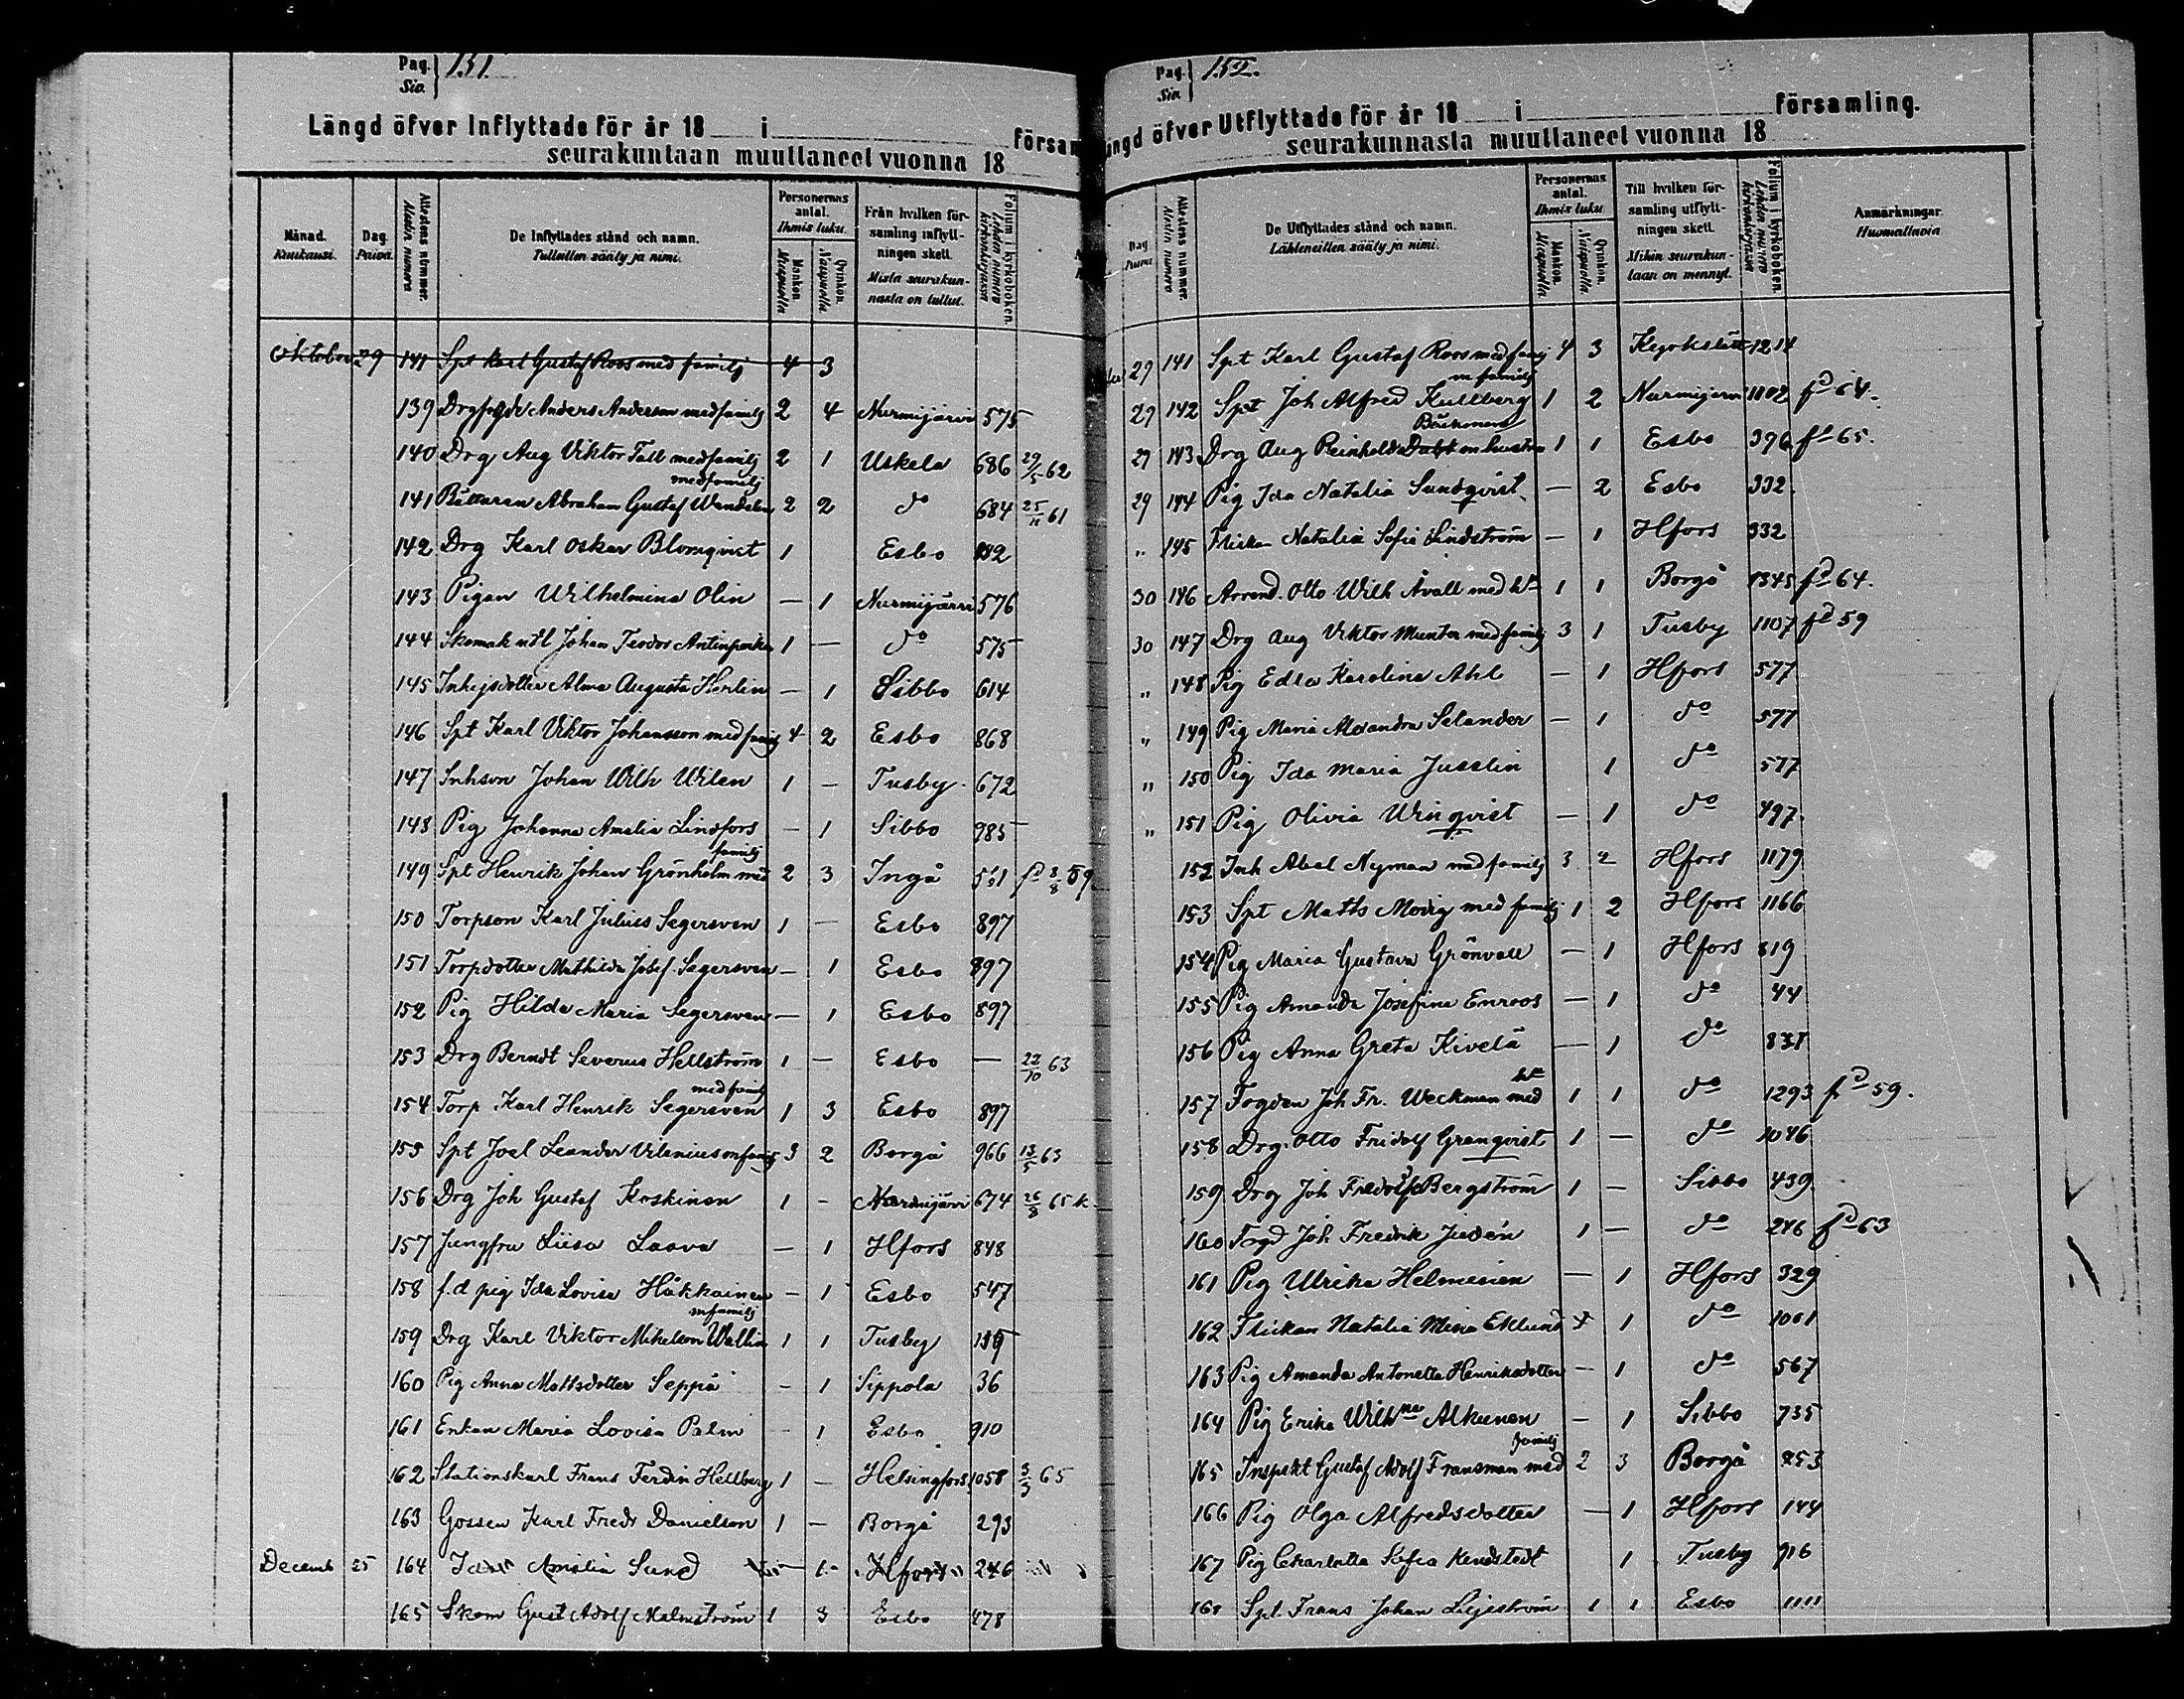 Pag. Siv. 151.
Längd öfver Inflyttade för år 18 i försam
seurakuntaan muuttaneet vuonna 18
Månad. Kuukausi.
Dag. Päivä.
Attestens nummer. Alestin numero
De Inflyttades stånd och namn. Tulleitten sääty ja nimi.
Personernas antal. Ihmis luku.
Mankön. Miespuolta
Qvinkön. Naispuolta.
Från hvilken församling inflyttningen skett. Mista seurakunnasta on tullut.
Folium i kyrkoboken. Lehden numero kirkonkirjassa
Oktober 29 141 Spt Karl Gustaf Roos med familj 4 3
139 Drg Anders Anderson med familj 2 4 Nurmijärvi 575
140 Drg Aug Viktor Tall med familj 2 1 Uskela 686 29/5 62
med familj
141 Abraham Gustaf Wendelin 2 2 do 684 25/11 61
142 Drg Karl Oskar Blomqvist 1 Esbo
143 Pigan Wilhelmina Olin — 1 Nurmijärvi 576
144 Skomak Johan Teodor 1 — do 575
145 Inhysdotter Alma Augusta Herlin — 1 Sibbo 614
146 Spt Karl Viktor Johansson med familj 4 2 Esbo 868
147 Inhson Johan Wilh Wilen 1 — Tusby 672
148 Pig Johanna Amalia Lindfors — 1 Sibbo 985
familj
149 Spt Henrik Johan Grönholm med 2 3 Ingå 561 fd 8/8 59
150 Torpson Karl Julius Segersven 1 — Esbo 897
151 Torpdotter Mathilda Josef. Segersven — 1 Esbo 897
152 Pig Hilda Maria Segersven — 1 Esbo 897
153 Drg Berndt Severus Hellström 1 — Esbo — 22/10 63
med familj
154 Torp Karl Henrik Segersven 1 3 Esbo 897
155 Spt Joel Leander Vilenius m familj 3 2 Borgå 966 13/5 63
156 Drg Joh Gustaf Koskinen 1 - Nurmijärvi 674 26/8 65 k.
157 Jungfru Liisa Laava — 1 Hfors 848
158 f.d pig Ida Lovisa Häkkainen — 1 Esbo 547
m familj
159 Drg Karl Viktor Mikelson Wallin 1 1 Tusby
160 Pig Anna Mattsdotter Seppä — 1 Sippola 36
161 Enkan Maria Lovisa Palm 1 Esbo 910
162 Stationskarl Frans Ferdin Hellberg 1 — Helsingfors 1058 3/3 65
163 Gossen Karl Fredr Danielson 1 — Borgå 293
Decemb 25 164 Ida Amalia Sund 1 Hfors 246
165 Skom Gust Adolf Malmström 1 3 Esbo 478
Pag. Siv. 152.
ängd öfver Utflyttade för år 18 i församling.
seurakunnasta muuttaneet vuonna 18
Dag
Attestens nummer. Alestin numero
De Utflyttades stånd och namn. Lähteneitten sääty ja nimi.
Personernas antal. Ihmis luku
Mankön. Miespuolta
Qvinkön. Naispuolta.
Till hvilken församling utflyttningen skett. Mihin seurakuntaan on mennyt.
Folium i kyrkoboken. Lehden numero kirkonkirjassa
Anmärkningar. Huomattavia
29 141 Spt Karl Gustaf Roos med familj 4 3 Kyrkslätt 1214
m familj
29 142 Spt Joh Alfred Kullberg 1 2 Nurmijärvi 1102 fd 64.
29 143 Drg Aug Reinhold m hustru 1 1 Esbo 396 fd 65.
29 144 Pig Ida Natalia Sundqvist — 2 Esbo 332.
„ 145 Flickan Natalia Sofia Lindström — 1 Hfors 332
30 146 Arrend. Otto Wilh Åvall med h 1 1 Borgå 1345 fd 64.
30 147 Drg Aug Viktor Munter med familj 3 1 Tusby 1107 fd 59
„ 148 Pig Edla Karolina Ahl — 1 Hfors 577
„ 149 Pig Maria Alexandra Selander — 1 do 577
„ 150 Pig Ida Maria Jusslin 1 do 577
„ 151 Pig Olivia Winqvist — 1 do 497.
152 Inh Abel Nyman med familj 3 2 Hfors 1179
153 Spt Matts Modig med familj 1 2 Hfors 1166
154 Pig Maria Gustava Grönvall — 1 Hfors 819
155 Pig Amanda Josefina Enroos — 1 do 44
156 Pig Anna Greta Kivelä — 1 do
157 Fogden Joh Fr. Weckman med h 1 1 do 1293 fd 59.
158 Drg. Otto Fridolf Granqvist 1 — do 1046
159 Drg Joh Fredolf Bergström 1 — Sibbo 439
160 Joh Fredrik Judén 1 — do 246 fd 63
161 Pig Ulrika Helmesien — 1 Hfors 329
162 Flickan Natalia Mina Eklund 1 do 1001
163 Pig Amanda Antonetta Henriksdotter — 1 do 567
164 Pig Erika Wilhna Alkunen — 1 Sibbo 735
familj
165 Inspekt Gustaf Adolf Fransman med 2 3 Borgå 853
166 Pig Olga Alfredsdotter — 1 Hfors 144
167 Pig Charlotta Sofia Kendstedt 1 Tusby 916
168 Spt. Frans Johan Liljeström 1 1 Esbo 1111